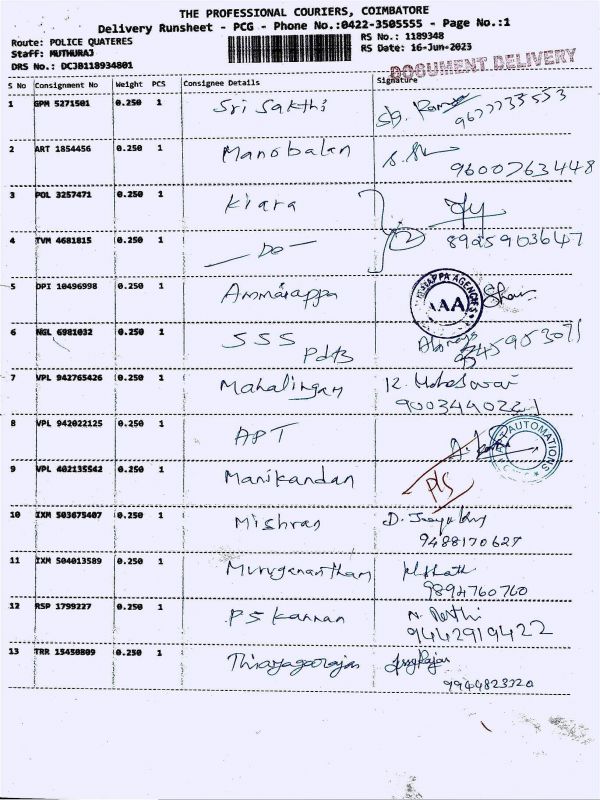 THE PROFESSIONAL COURIERS, COIMBATORE
Delivery Runsheet - PCG - Phone No.:0422-3505555 - Page No.:1
Route: POLICE QUATERES
RS No.: 1189348
Staff: MUTHURAJ
RS Date: 16-Jun-2023
DRS No.: DCJB118934801
DOCUMENT DELIVERY
S No Consignment No Weight PCS Consignee Details Signature
1 GPM 5271501 0.250 1 Sri Sakthi
9677735553
2 ART 1854456 0.250 1 Manobalan
9600763448
3 POL 3257471 0.250 1 Kiara
4 TVM 4681815 0.250 1 — Do — 2
8925903647
5 DPI 10496998 0.250 1 Ammaiappa
AGENCIES
AAA
6 NGL 6981032 0.250 1 SSS
Pdts
7 VPL 942765426 0.250 1 Mahalingam
8 VPL 942022125 0.250 1 APT
APT AUTOMATIONS
9 VPL 402135542 0.250 1 Manikandan P/S
10 IXM 503675407 0.250 1 Mishran
9488170627
11 IXM 504013589 0.250 1 Muruganantham
9894760760
12 RSP 1799227 0.250 1 PS Kannan
9442919422
13 TRR 15450809 0.250 1 Thiyagarajan
9944823320